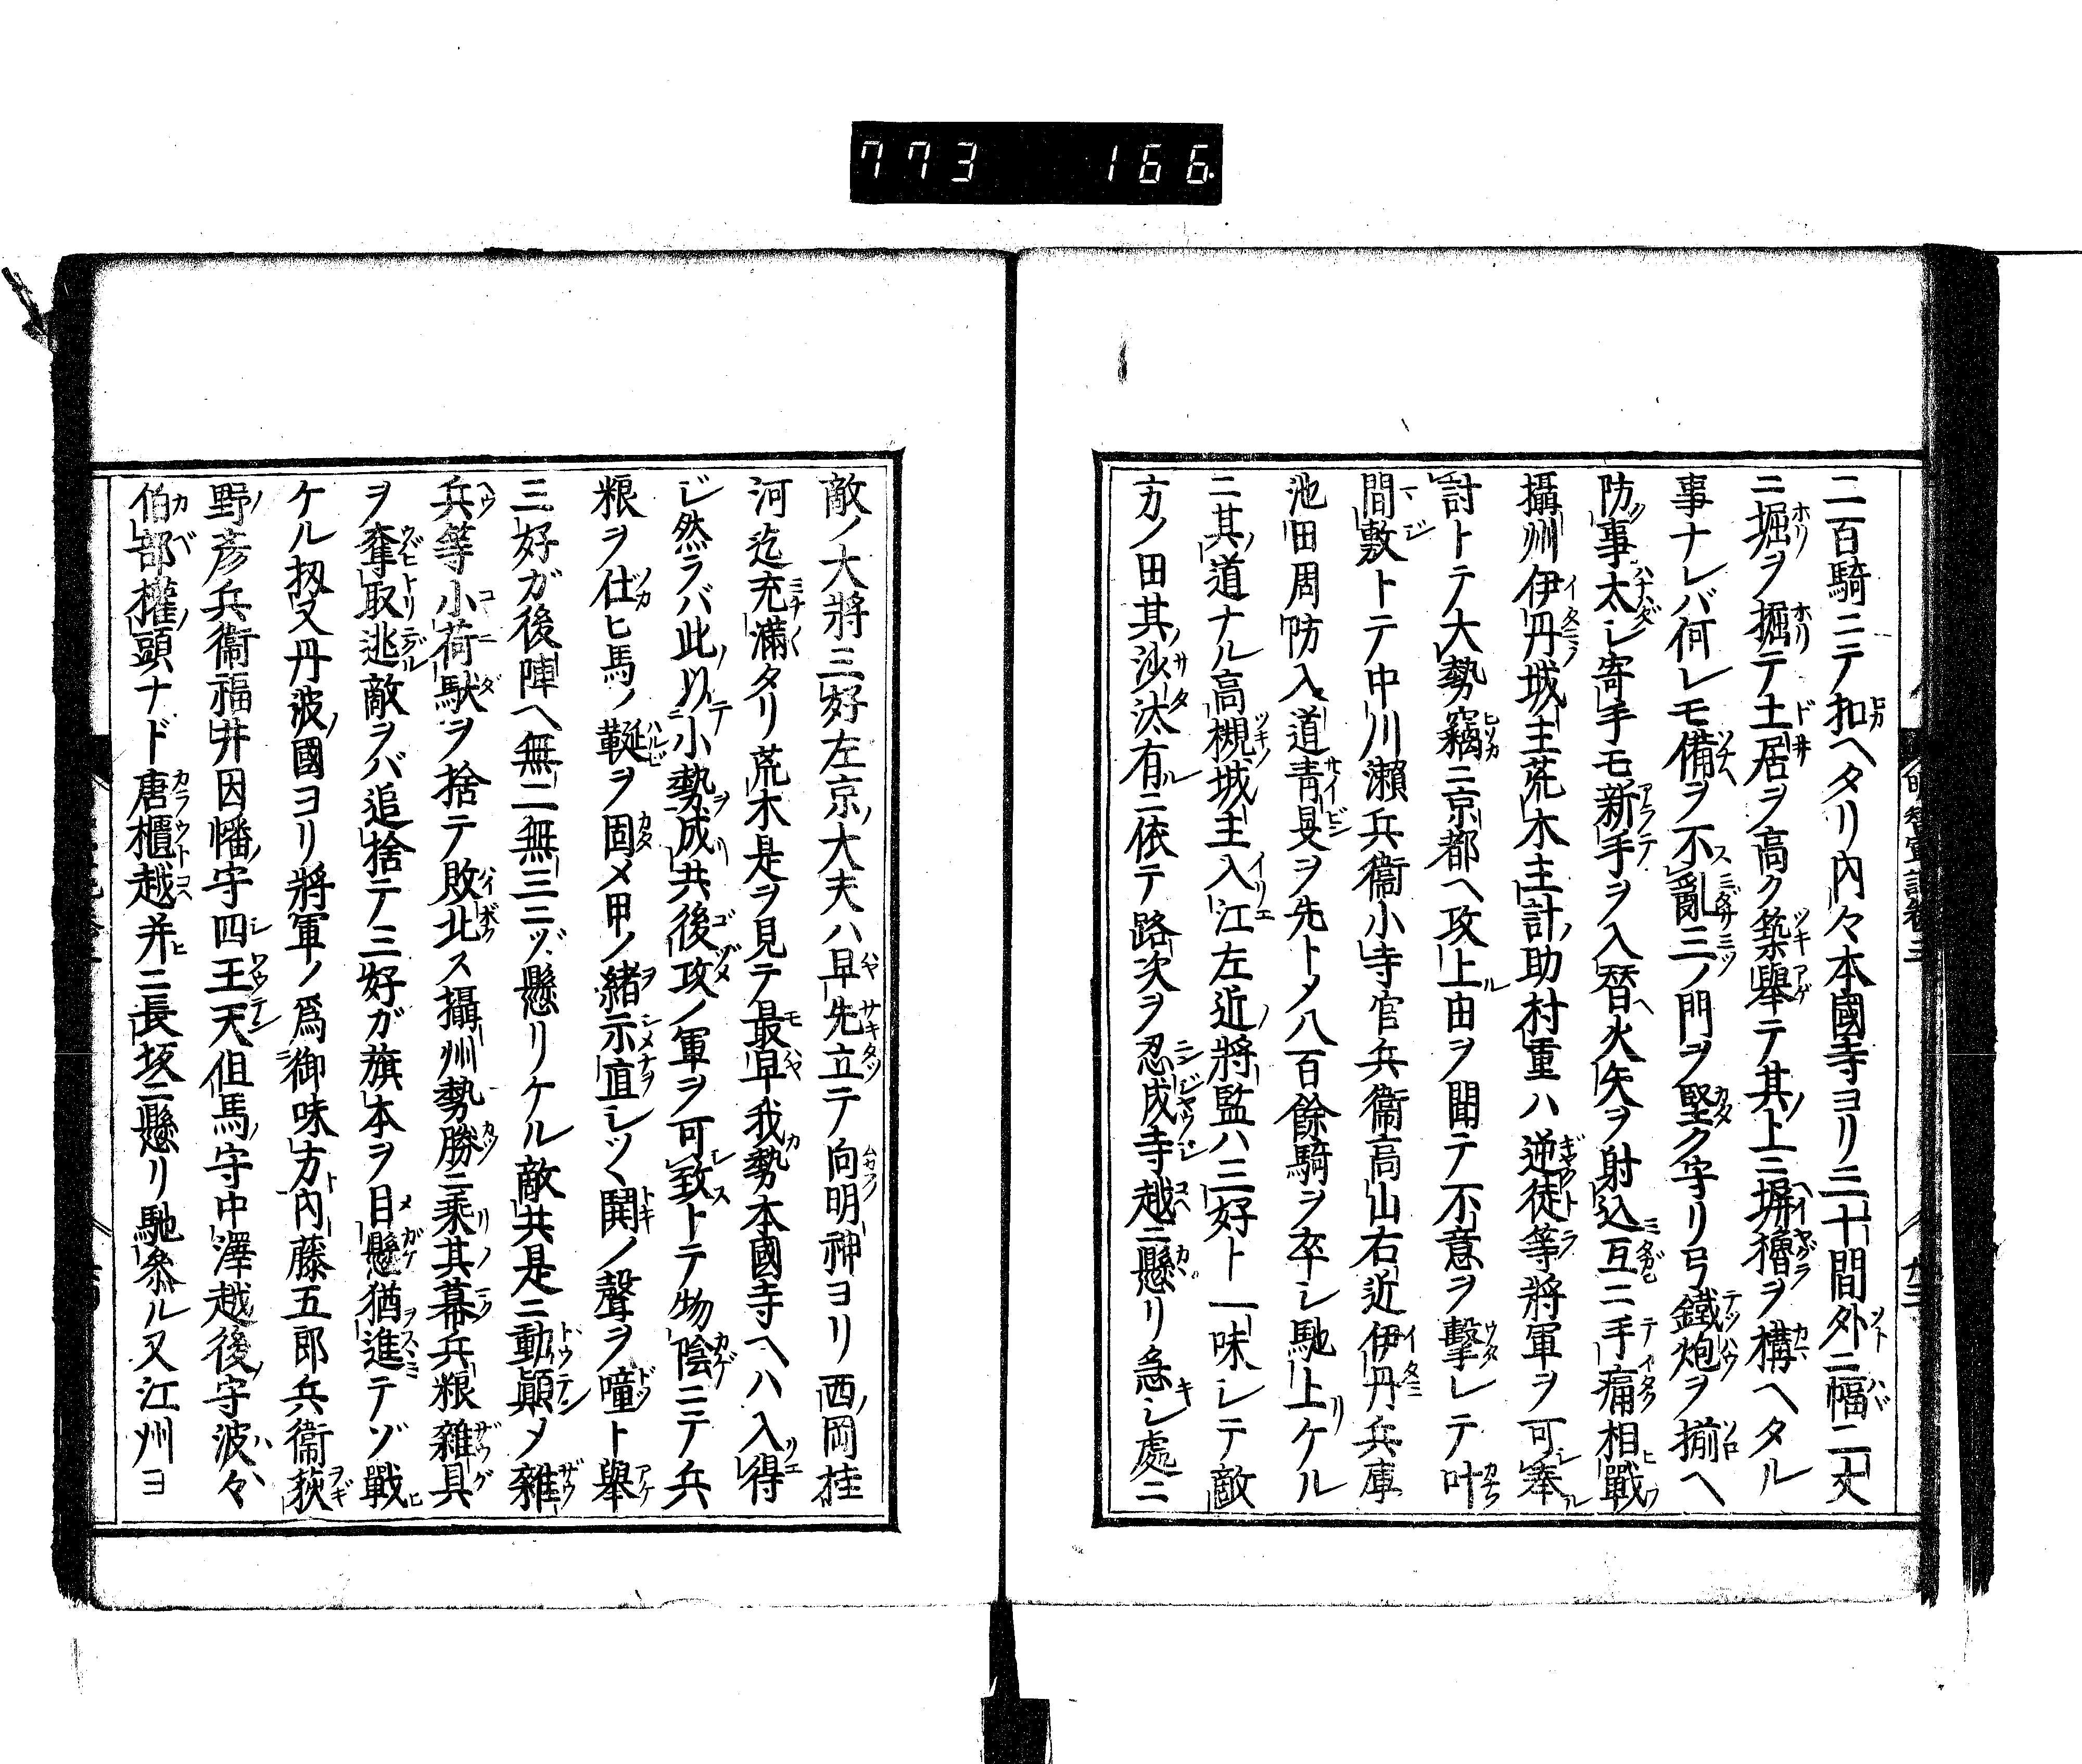 773 166
二百騎ニテ扣ヘタリ内々本國寺ヨリ三十間外ニ幅二丈
ニ掘ヲ掘テ土居ヲ高ク築舉テ其上ニ塀櫓ヲ構ヘタル
事ナレバ何レモ備ヲ不亂三ノ門ヲ堅ク守リ弓鐵炮ヲ揃ヘ
防事太シ寄手モ新手ヲ入替火矢ヲ射込互ニ手痛相戰
攝州伊丹城主荒木主計助村重ハ逆徒等將軍ヲ可奉
討トテ大勢竊ニ京都ヘ攻上由ヲ聞テ不意ヲ擊レテ叶
間敷トテ中川瀬兵衞小寺官兵衞高山右近伊丹兵庫
池田周防入道青旻ヲ先トメ八百餘騎ヲ卒シ馳上リケル
ニ其道ナル高槻城主入江左近ノ將監ハ三好ト一味シテ敵
方ノ田其沙汰有ニ依テ路次ヲ忍成寺越ニ懸リ急シ處ニ
敵ノ大將三好左京ノ大夫ハ早先立テ向明神ヨリ西ノ岡桂
河迄充滿タリ荒木是ヲ見テ最早我勢本國寺ヘハ入得
ジ然ラバ此ノ以小勢成共後攻ノ軍ヲ可致トテ物陰ニテ兵
粮ヲ仕ヒ馬ノ鞍ヲ固メ甲ノ緒示直シツヽ鬨ノ聲ヲ噇ト舉
三好ガ後陣ヘ無二無三ニゾ懸リケル敵共是ニ動顚メ雜
兵等小荷駄ヲ捨テ敗北ス攝州勢勝ニ乘其幕兵粮雜具
ヲ奪取逃敵ヲバ追捨テ三好ガ旗本ヲ目懸猶進テゾ戰
ケル扨又丹波ノ國ヨリ將軍ノ爲御味方ト内藤五郎兵衞荻
野彦兵衞福井因幡ノ守四王天但馬ノ守中澤越後ノ守波々
伯部權頭ナド唐櫃越并ニ長坂ニ懸リ馳參ル又江州ヨ